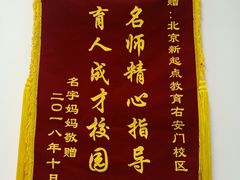 赠：北京新起点教育右安门校区
名师精心指导
育人成才校园
名宇妈妈敬赠
二〇一八年十月